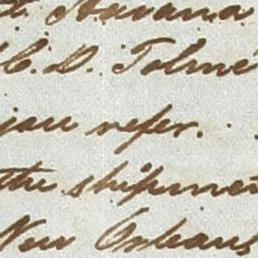 at Havana
C. D. Tolmé
you refer.
the shipmen
New Orleans